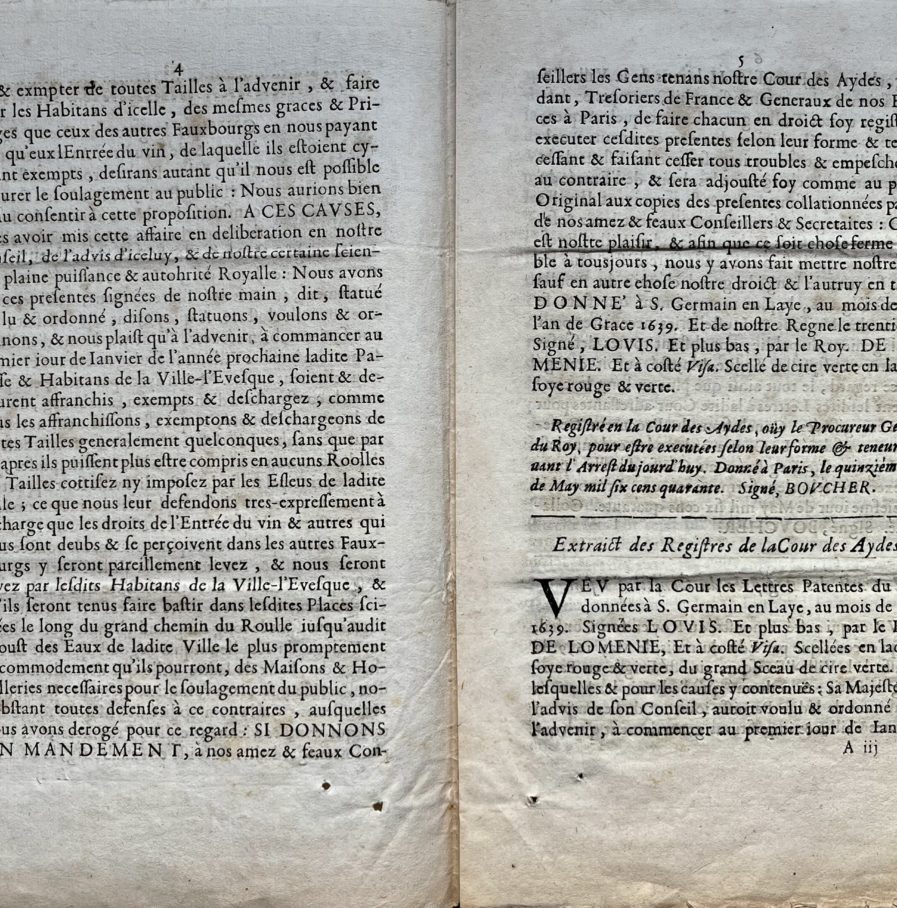 4
& exmpter de toutes Tailles à l'advenir, & faire
les Habitans d'icelle, des mesmes graces & Pri-
que ceux des autres Fauxbourgs en nous payant
qu'eux lEntrée du vin, de laquelle ils estoient cy-
exempts, desirans autant qu'il nous est possible
le soulagement au public : Nous aurions bien
consentir à cette proposition. A CES CAVSES,
avoir mis cette affaire en deliberation en nostre
de l'advis d'iceluy, & de nostre certaine scien-
plaine puissance & autohrité Royalle : Nous avons
ces presentes signées de nostre main, dit, statué
& ordonné, disons, statuons, voulons & or-
& nous plaist qu'à l'advenir, à commancer au
iour de Ianvier de l'année prochaine ladite Pa-
& Habitans de la Ville-l'Evesque, soient & de-
affranchis, exempts & deschargez, comme
les affranchissons, exemptons & deschargeons de
Tailles generalement quelconques, sans que par
apres ils puissent plus estre compris en aucuns Roolles
Tailles cottisez ny imposez par les Esleus de ladite
; ce que nous leur defendons tres-expressement à
charge que les droits de l'Entrée du vin & autres qui
sont deubs & se perçoivent dans les autres Faux-
y seront pareillement levez, & nous seront
par lesdits Habitans de la Ville-l'Evesque, &
qu'ils seront tenus faire bastir dans lesdites Places sci-
le long du grand chemin du Roulle iusqu'audit
des Eaux de ladite Ville le plus promptement
commodement qu'ils pourront, des Maisons & Ho-
necessaires pour le soulagement du public, no-
toutes defenses à ce contraires, ausquelles
avons derogé pour ce regard : SI DONNONS
EN MANDEMENT, à nos amez & feaux Con-
5
seillers les Gens tenans nostre Cour des Aydes,
dant, Tresoriers de France & Generaux de nos
ces à Paris, de faire chacun en droict soy
executer cesdites presentes selon leur forme &
cessant & faisant cesser tous troubles &
au contraire, & sera adjousté foy comme au
Original aux copies des presentes collationnées
de nos amez & feaux Conseillers & Secretaites :
est nostte plaisir, & afin que ce soit chose ferme
ble à tousjours, nous y avons fait mettre nostre
sauf en autre chose nostre droict & l'autruy en
DONNE' à S. Germain en Laye, au mois de
l'an de Grace 1639. Et de nostre Regne le
Signé, LOVIS. Et plus bas, par le Roy. DE
MENIE. Et à costé Visa. Scellé de cire verte en
soye rouge & verte.
Registré en la Cour des Aydes, oüy le Procureur
du Roy, pour estre executées selon leur forme & teneur
vant l'Arrest dujourd'huy. Donné à Paris, le
de May mil six cens quarante. Signé, BOVCHER.
Extraict des Registres de la Cour des Aydes
VEV par la Cour les Lettres Patentes du
données à S. Germain en Laye, au mois de
1639. Signées LOVIS. Et plus bas, par le
DE LOMENIE, Et à costé Visa. Scellées en
soye rouge & verte, du grand Sceau de cire verte.
lesquelles & pour les causes y contenuës : Sa
l'advis de son Conseil, auroit voulu & ordonné
l'advenir, à commencer au premier iour de
A iij